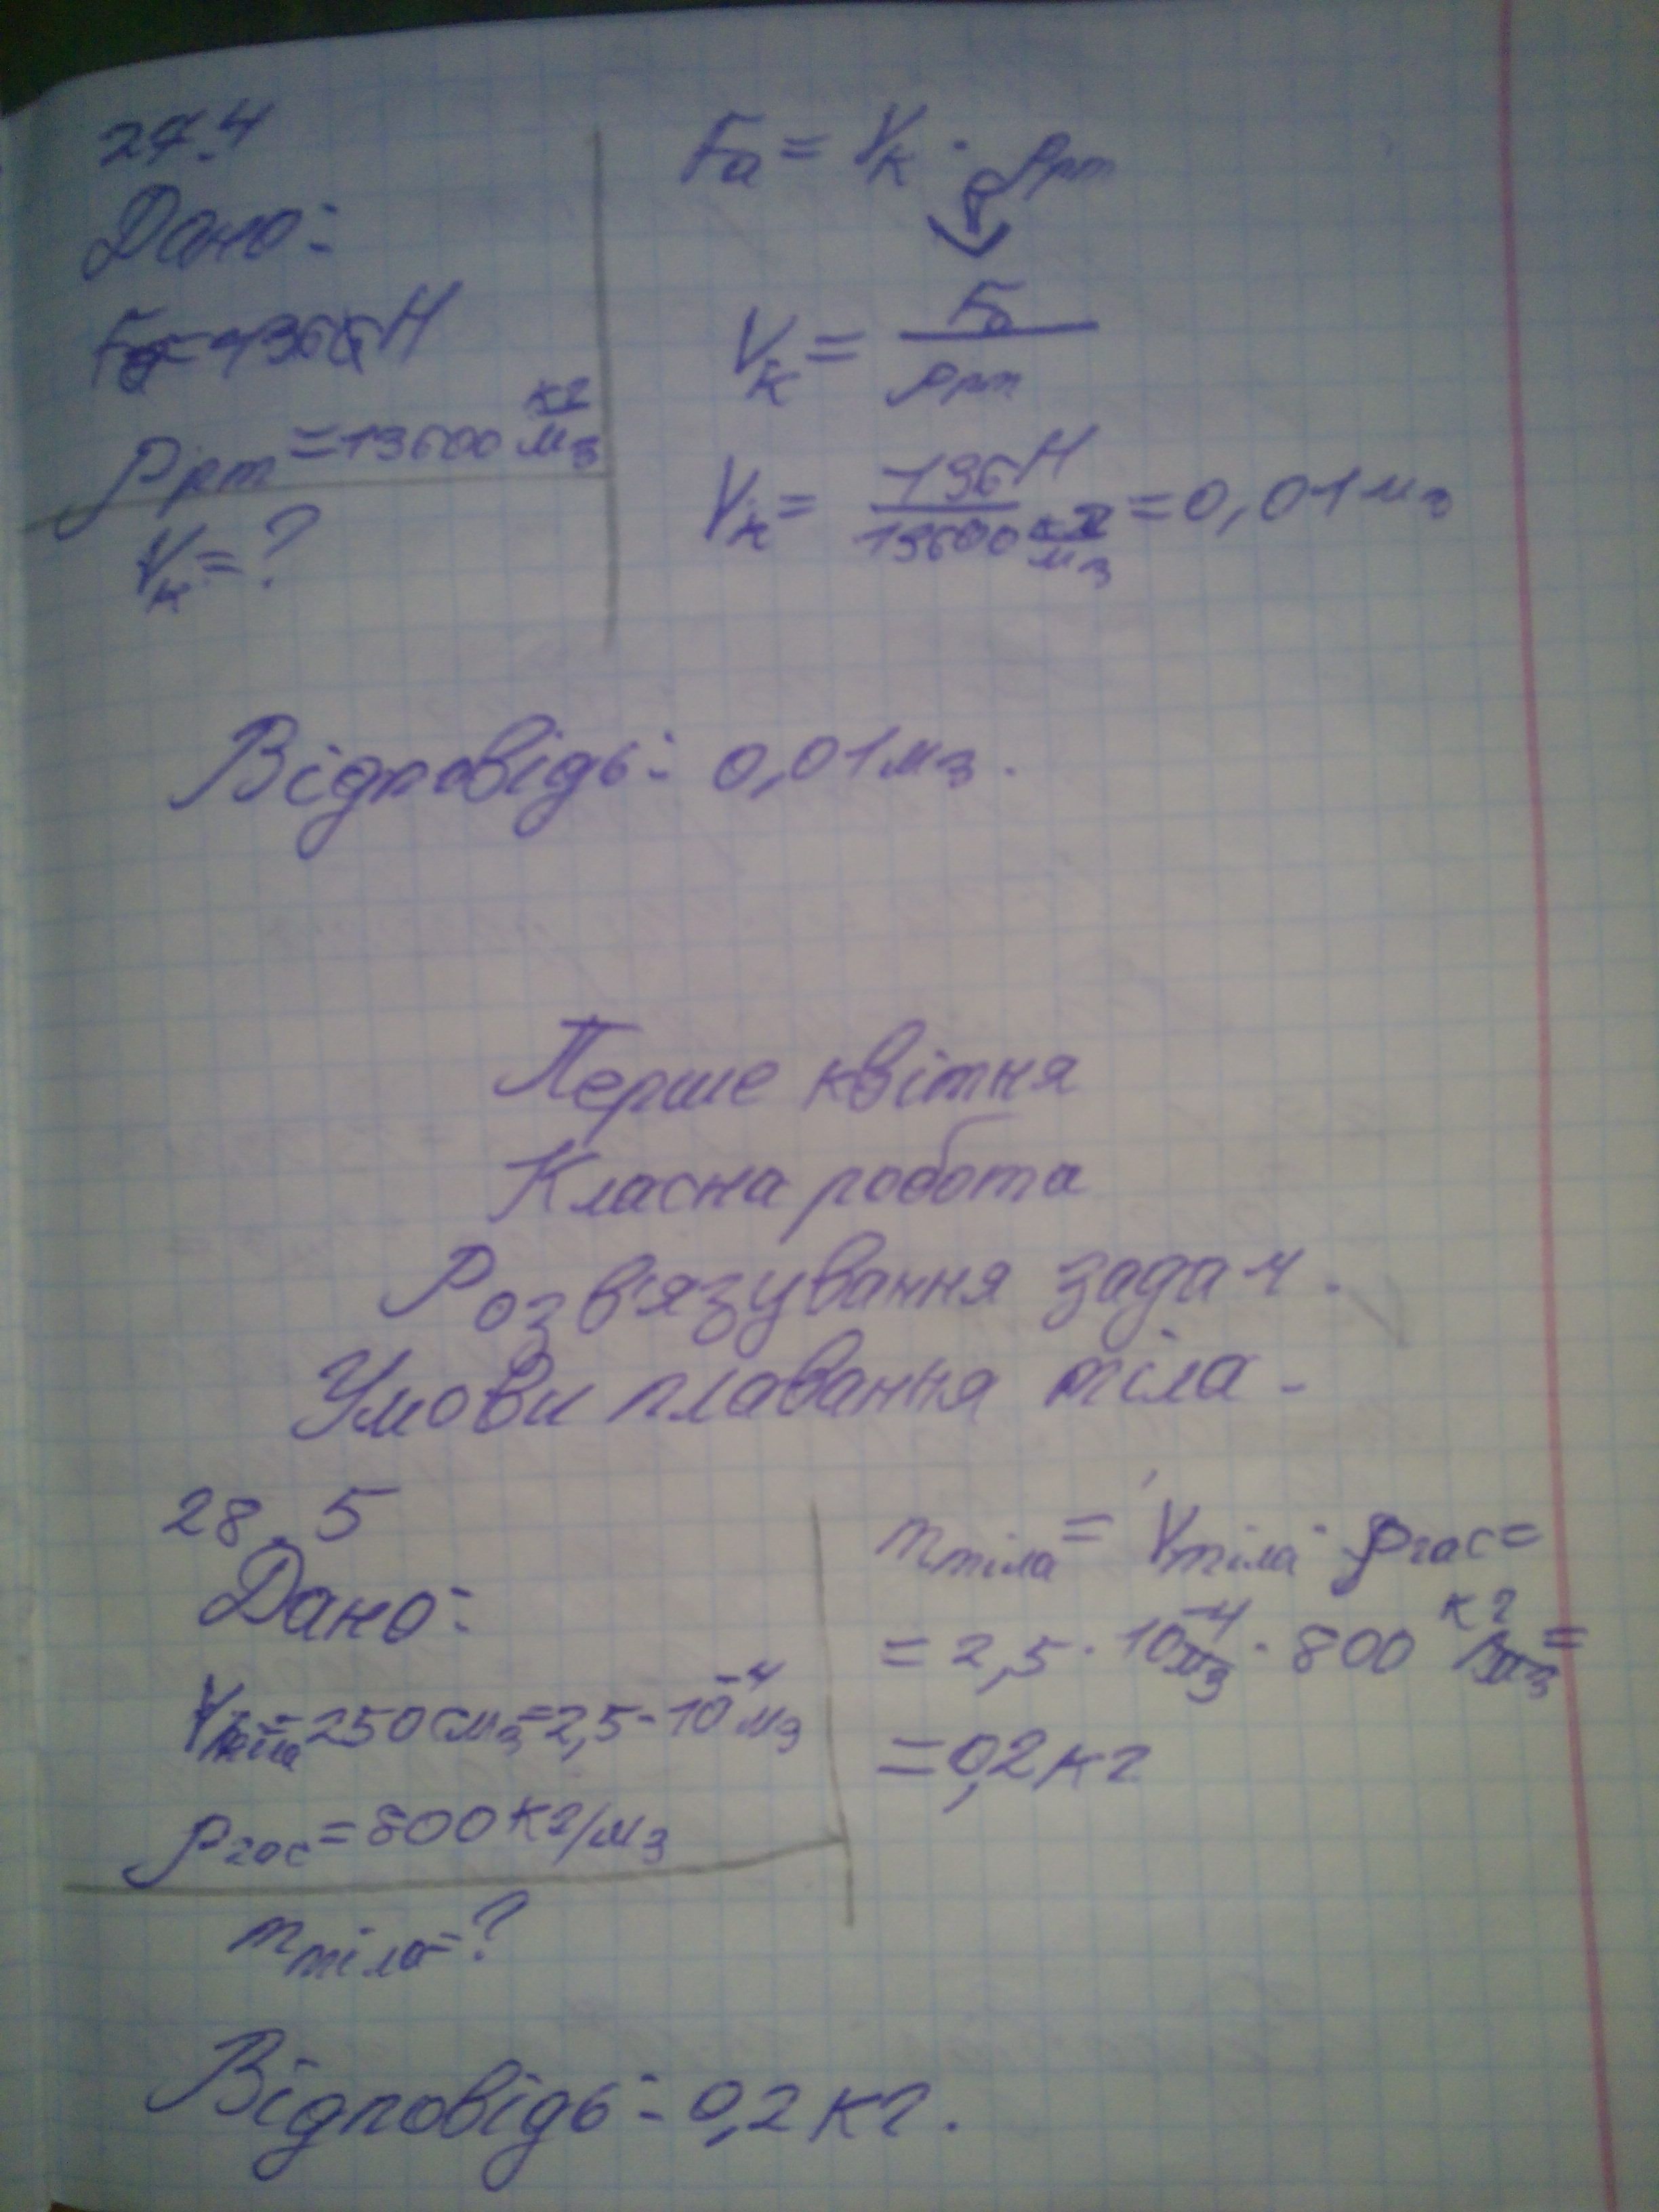 27.4
Дано:
Fa=136 H
ρрт=13600 кг/м3
Vк=?
Fa = Vк · ρрт
Vк = Fa/ρрт
Vк = 136 H/13600 кг/м3 = 0,01 м3
Відповідь: 0,01 м3.
Перше квітня
Класна робота
Розв'язування задач.
Умови плавання тіла.
28.5
Дано:
Vтіла=250 см3=2,5·10⁻⁴ м3
ρгас=800 кг/м3
mтіла=?
mтіла = Vтіла · ρгас =
= 2,5 · 10⁻⁴ м3 · 800 кг/м3 =
= 0,2 кг
Відповідь: 0,2 кг.